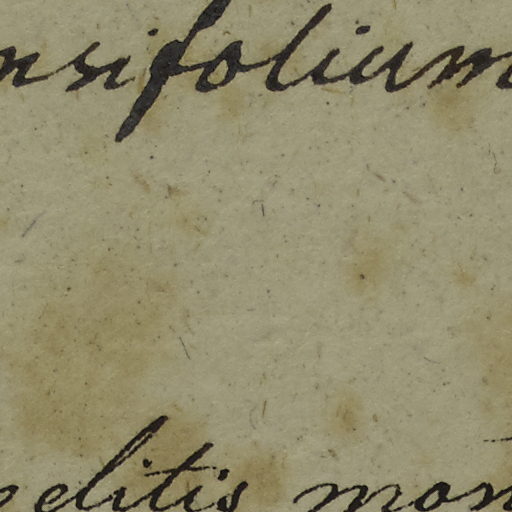 nsifolium
pelitis mon